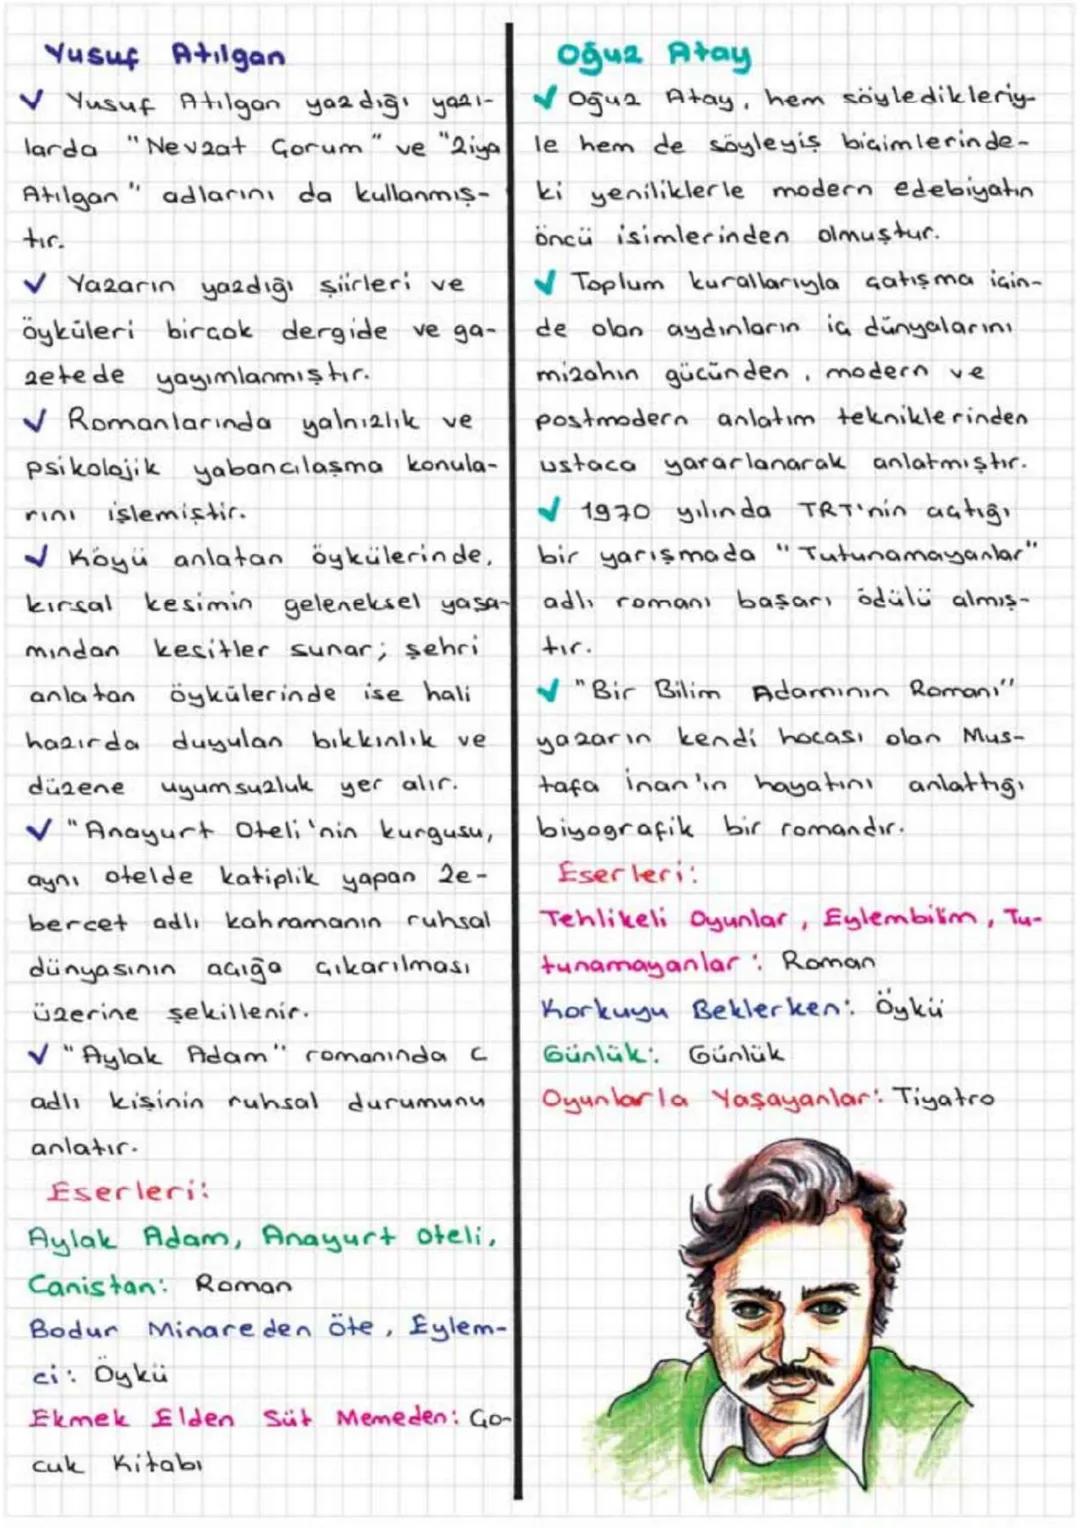 Yusuf Atılgan
✓ Yusuf Atılgan yazdığı yazı-
larda "Nevzat Çorum" ve "Ziya
Atılgan" adlarını da kullanmış-
tır.
✓ Yazarın yazdığı şiirleri ve
öyküleri birçok dergide ve ga-
zetede yayımlanmıştır.
✓ Romanlarında yalnızlık ve
psikolojik yabancılaşma konula-
rını işlemiştir.
✓ Köyü anlatan öykülerinde,
kırsal kesimin geleneksel yaşa-
mından kesitler sunar; şehri
anlatan öykülerinde ise hali
hazırda duyulan bıkkınlık ve
düzene uyumsuzluk yer alır.
✓ "Anayurt Oteli'nin kurgusu,
aynı otelde katiplik yapan Ze-
bercet adlı kahramanın ruhsal
dünyasının açığa çıkarılması
üzerine şekillenir.
✓ "Aylak Adam" romanında C
adlı kişinin ruhsal durumunu
anlatır.
Eserleri:
Aylak Adam, Anayurt Oteli,
Canistan: Roman
Bodur Minareden Öte, Eylem-
ci: Öykü
Ekmek Elden Süt Memeden: Ço-
cuk Kitabı
Oğuz Atay
✓ Oğuz Atay, hem söyledikleriy-
le hem de söyleyiş biçimlerinde-
ki yeniliklerle modern edebiyatın
öncü isimlerinden olmuştur.
✓ Toplum kurallarıyla çatışma için-
de olan aydınların iç dünyalarını
mizahın gücünden, modern ve
postmodern anlatım tekniklerinden
ustaca yararlanarak anlatmıştır.
✓ 1970 yılında TRT'nin açtığı
bir yarışmada "Tutunamayanlar"
adlı romanı başarı ödülü almış-
tır.
✓ "Bir Bilim Adamının Romanı"
yazarın kendi hocası olan Mus-
tafa İnan'ın hayatını anlattığı
biyografik bir romandır.
Eserleri:
Tehlikeli Oyunlar, Eylembilim, Tu-
tunamayanlar: Roman
Korkuyu Beklerken: Öykü
Günlük: Günlük
Oyunlarla Yaşayanlar: Tiyatro